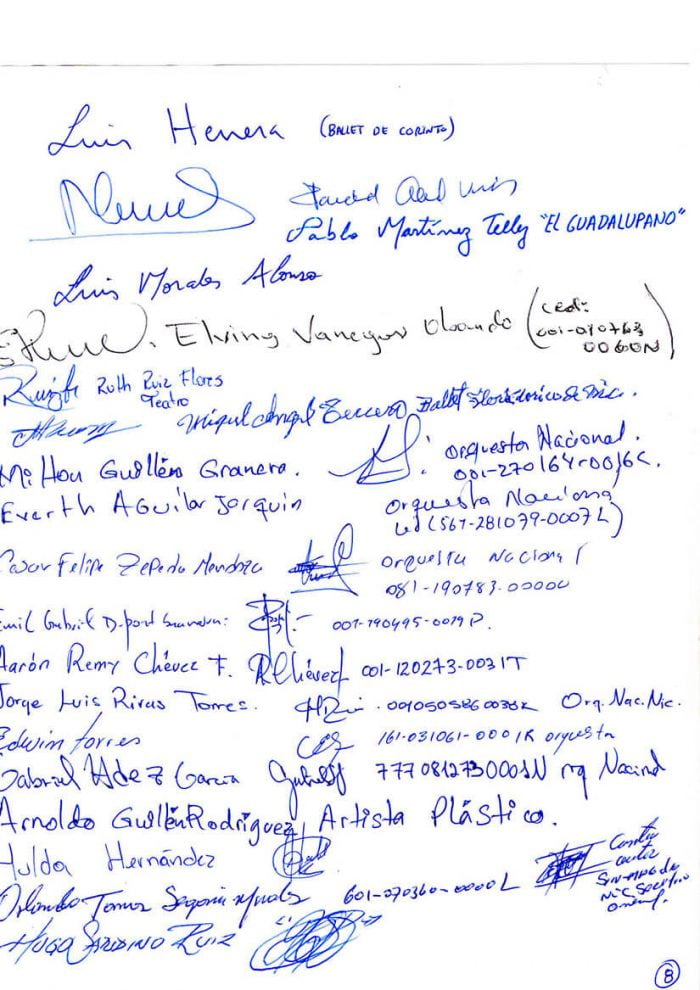 Luis Herrera (BALLET DE CORINTO)
Pablo Martínez Tellez "EL GUADALUPANO"
Luis Morales Alonso
Elving Vanegas Obando (Ced:
001-010763
0060N)
Ruth Ruiz Flores
Teatro
Miguel Angel Ballet Folklorico de Nic.
Milton Guillén Granera. Orquesta Nacional.
001-270164-0016C.
Everth Aguilar Jarquin Orquesta Naciona
Ced (567-281079-0007L)
Felipe Zepeda Mendoza Orquesta Nacional
081-190783.0000U
Gabriel 001-190495-0019P.
Aarón Remy Chévez F. RChévezf 001-120273-0031T
Jorge Luis Rivas Torres. 0010505860038K Orq. Nac. Nic.
Edwin Torres 161-031061-0001K orquesta
Gabriel Hdez Garcia 7770812730001N
Arnoldo Guillén Rodríguez, Artista Plástico.
Hulda Hernández
Orlando Tomas Segovia 601-070360-0000L
Hugo Sandino Ruiz
8